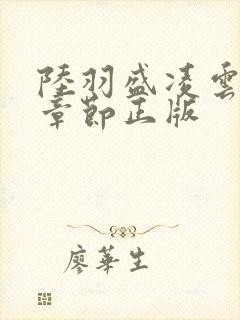 陸羽盛凌雲
章節正版
廖華生